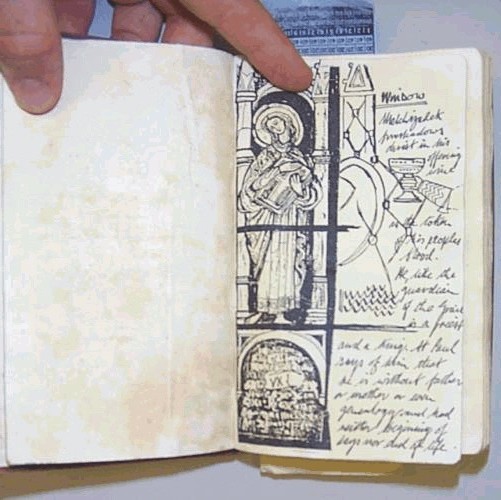 Window
Melchizedek
foreshadows
Christ in his
offering
wine
as the token
of his peoples
blood.
He, like the
guardian
of the Grail
is a priest
and a king. St Paul
says of him that
he is without father
or mother or even
genealogy and had
neither beginning of
days nor end of life.